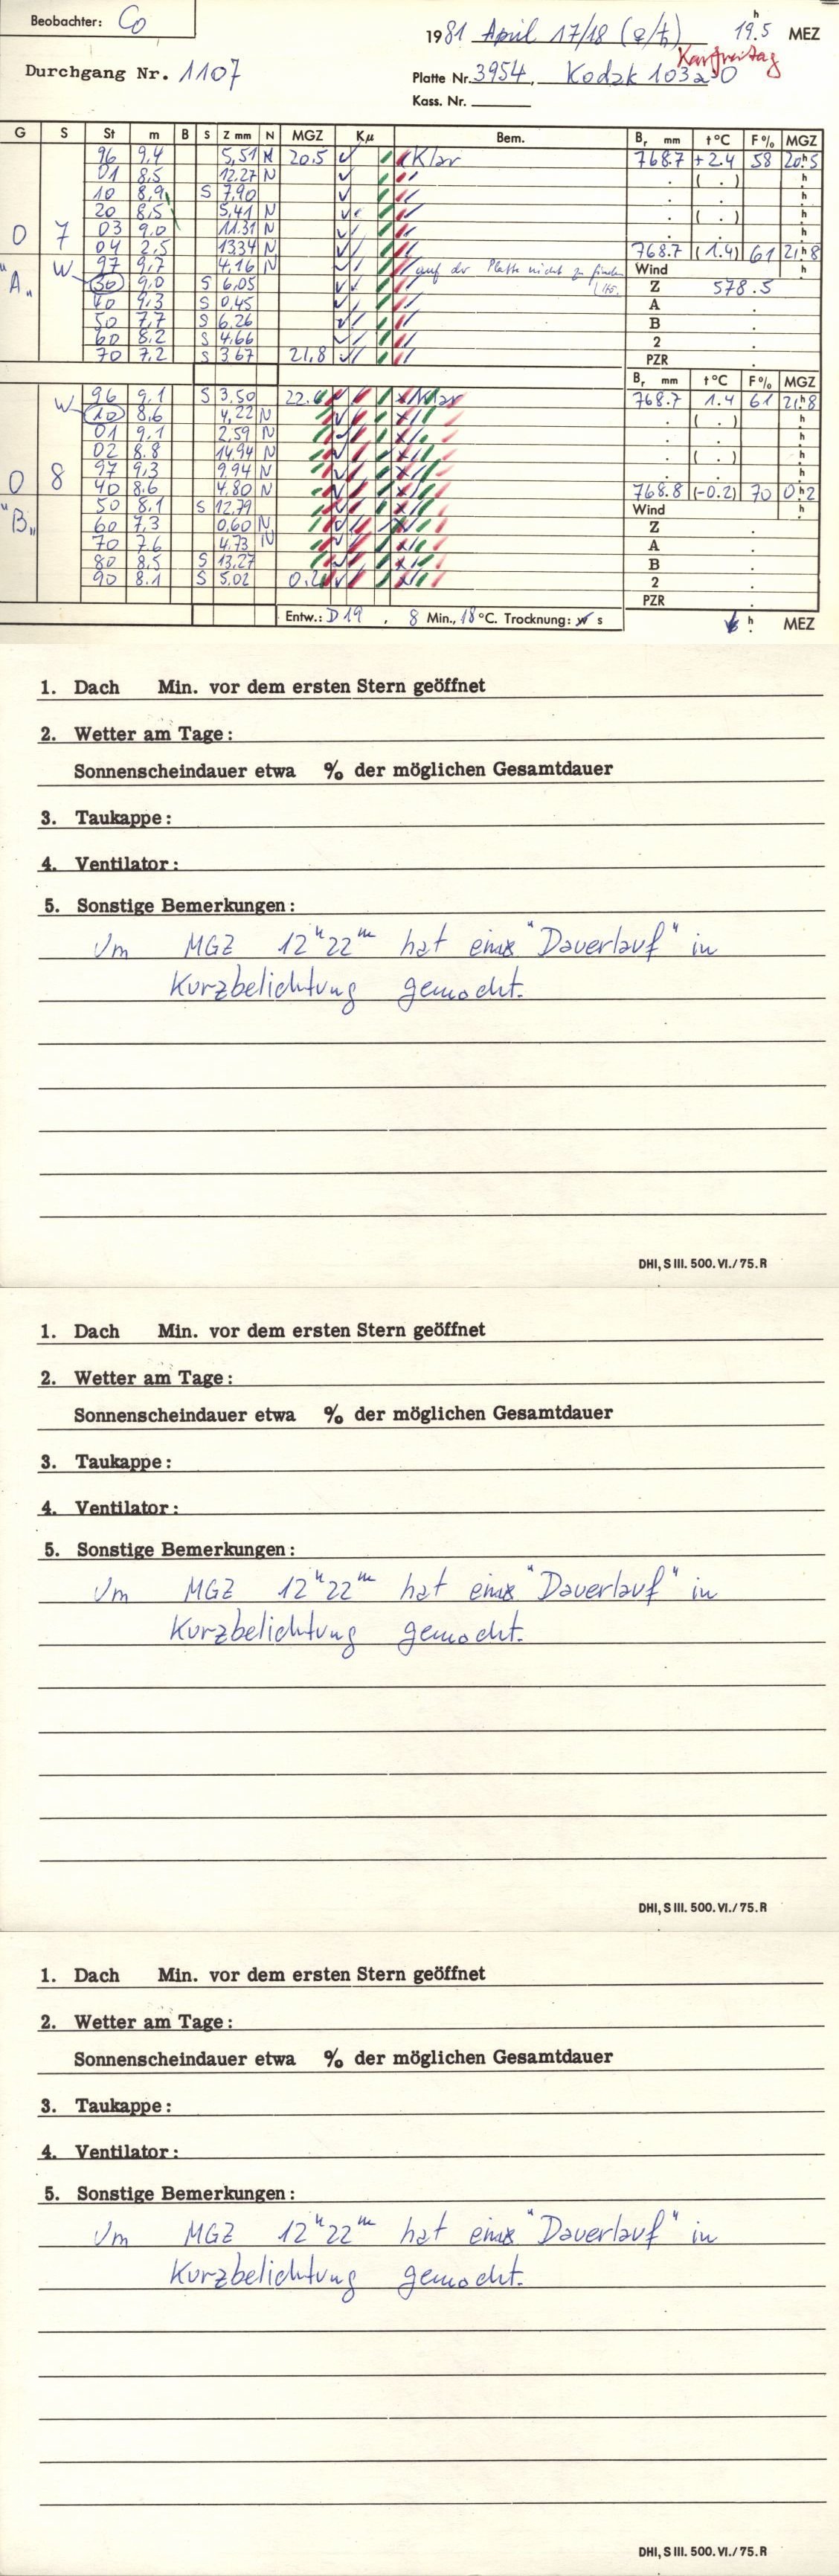 Beobachter: Co
1981 April 17/18 (♀/♄) 19.5 h MEZ
Karfreitag
Durchgang Nr. 1107
Platte Nr. 3954, Kodak 103a-O
Kass. Nr.
G S St m B S Z mm N MGZ Kμ Bem. Br mm t°C F% MGZ
96 9,4 5,51 N 20.5 Klar 768.7 +2.4 58 20h5
01 8,5 12.27 N ( . ) h
10 8,9 S 7,90 h
20 8,5 5,41 N ( . ) h
03 9,0 11.31 N h
O 7 04 2,5 13.34 N 768.7 (1.4) 61 21h8
"A" W 97 9,7 4,16 N auf der Platte nicht zu finden Wind h
30 9,0 S 6,05 Z 578.5
40 9,3 S 0,45 A
50 7,7 S 6,26 B
60 8,2 S 4,66 2
70 7,2 S 3,67 21,8 PZR
Br mm t°C F% MGZ
W 96 9,1 S 3.50 Klar 768.7 1.4 61 21h8
10 8,6 4,22 N ( . ) h
01 9,1 2.59 N h
02 8.8 14.94 N ( . ) h
97 9,3 9,94 N h
O 8 40 8,6 4,80 N 768.8 (-0.2) 70 0h2
"B" 50 8,1 S 12,79 Wind h
60 7,3 0,60 N Z
70 7.6 4,73 N A
80 8,5 S 13,27 B
90 8.1 S 5,02 0.2 2
PZR
Entw.: D 19 , 8 Min., 18 °C. Trocknung: w s h MEZ
1. Dach Min. vor dem ersten Stern geöffnet
2. Wetter am Tage:
Sonnenscheindauer etwa % der möglichen Gesamtdauer
3. Taukappe:
4. Ventilator:
5. Sonstige Bemerkungen:
Um MGZ 12h22m hat eine "Dauerlauf" in
Kurzbelichtung gemacht.
DHI, S III. 500. VI./75. R
1. Dach Min. vor dem ersten Stern geöffnet
2. Wetter am Tage:
Sonnenscheindauer etwa % der möglichen Gesamtdauer
3. Taukappe:
4. Ventilator:
5. Sonstige Bemerkungen:
Um MGZ 12h22m hat eine "Dauerlauf" in
Kurzbelichtung gemacht.
DHI, S III. 500. VI./75. R
1. Dach Min. vor dem ersten Stern geöffnet
2. Wetter am Tage:
Sonnenscheindauer etwa % der möglichen Gesamtdauer
3. Taukappe:
4. Ventilator:
5. Sonstige Bemerkungen:
Um MGZ 12h22m hat eine "Dauerlauf" in
Kurzbelichtung gemacht.
DHI, S III. 500. VI./75. R